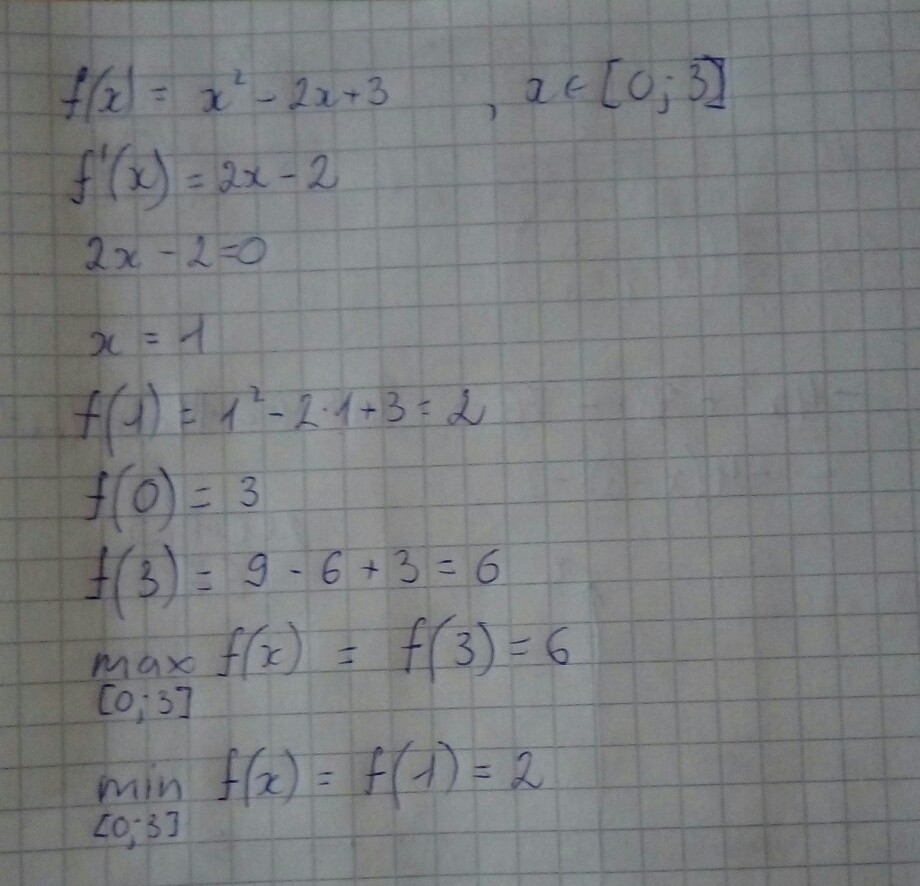 f(x) = x² - 2x + 3 , x ∈ [0; 3]
f'(x) = 2x - 2
2x - 2 = 0
x = 1
f(1) = 1² - 2·1 + 3 = 2
f(0) = 3
f(3) = 9 - 6 + 3 = 6
max f(x) = f(3) = 6
[0; 3]
min f(x) = f(1) = 2
[0; 3]